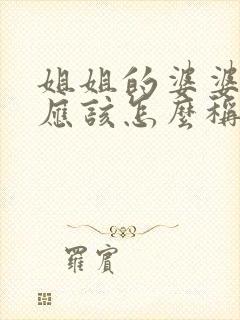 姐姐的婆婆
應該怎麼稱
羅賓